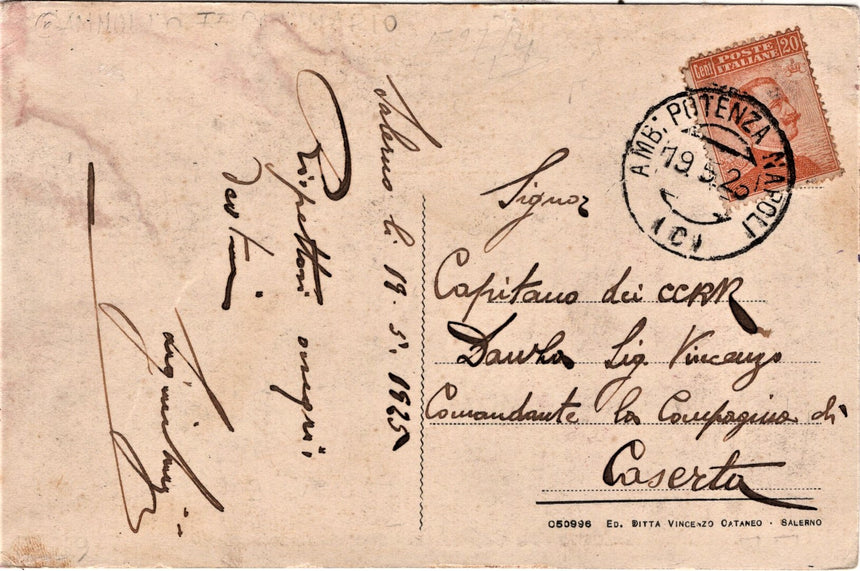 Salerno li 19. 5. 1925
Rispettosi ossequi,
Cent 20
POSTE
ITALIANE
AMB. POTENZA NAPOLI
19.5.25
(C)
Signor
Capitano dei CCRR
Sig. Vincenzo
Comandante la Compagnia di
Caserta
050996 ED. DITTA VINCENZO CATANEO - SALERNO